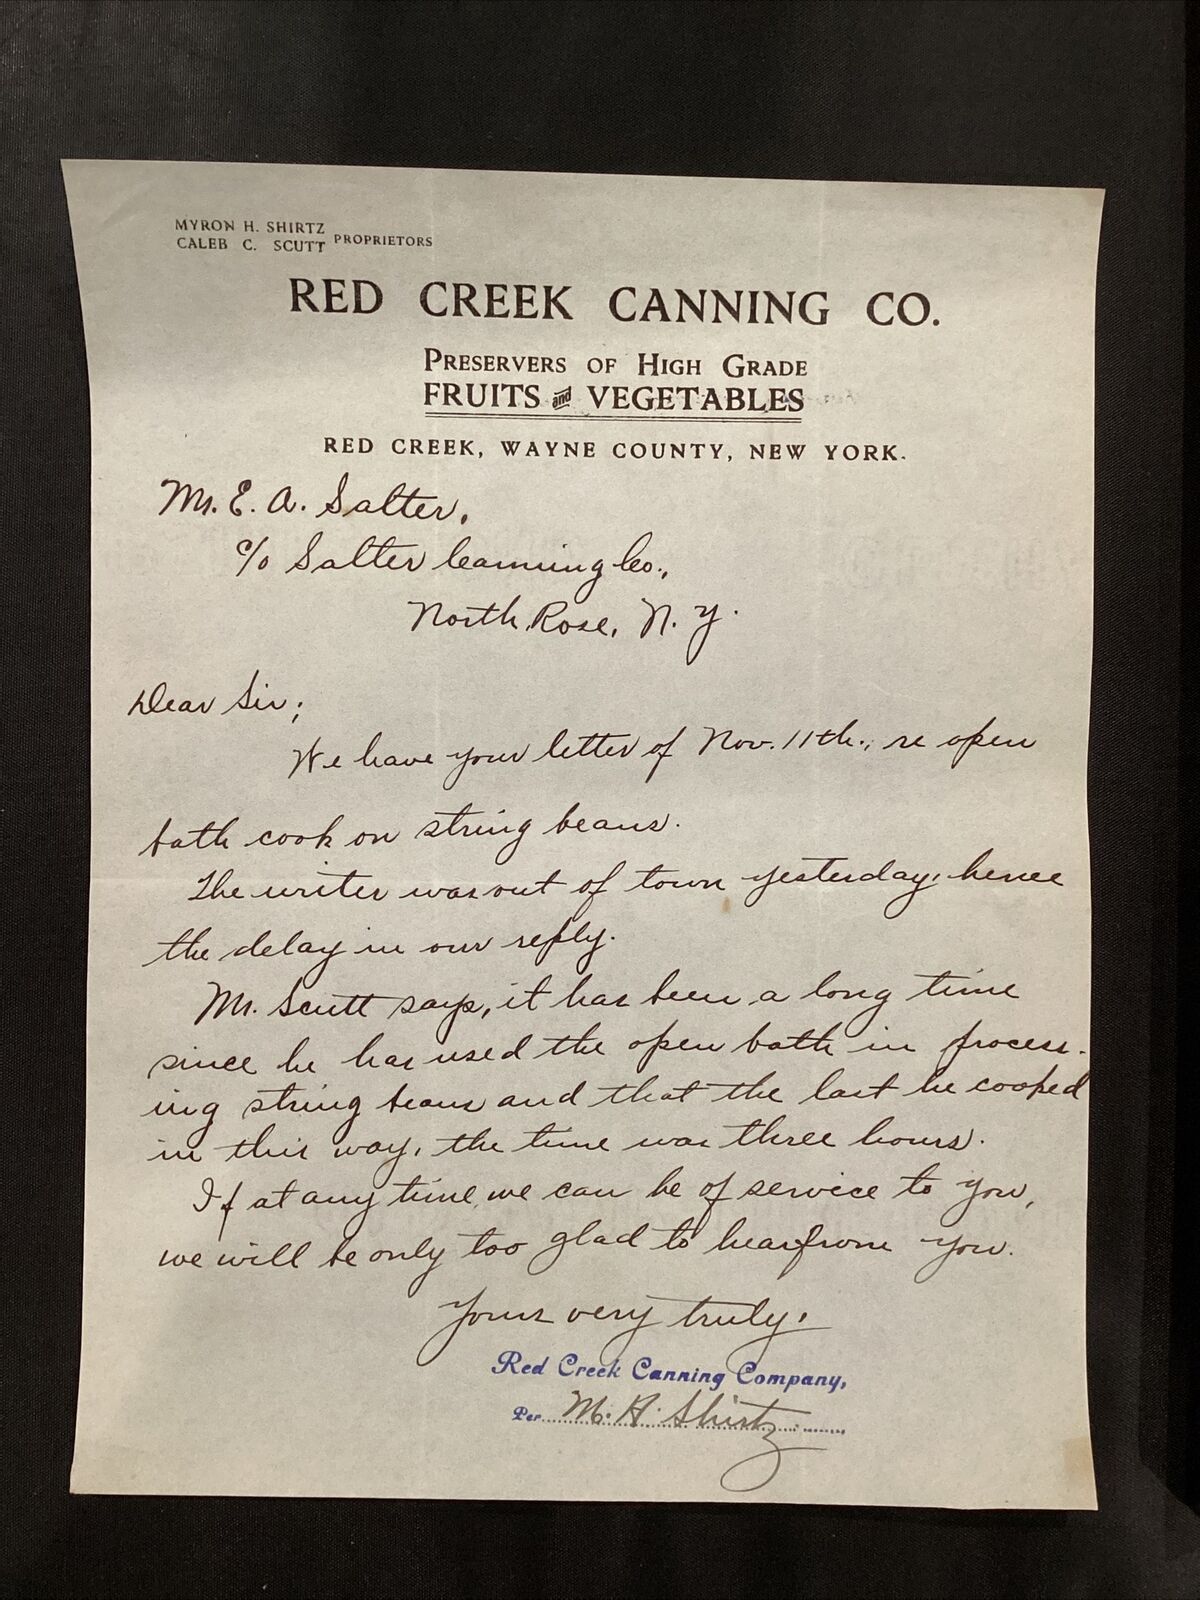 MYRON H. SHIRTZ
CALEB C. SCUTT PROPRIETORS
RED CREEK CANNING CO.
PRESERVERS OF HIGH GRADE
FRUITS and VEGETABLES
RED CREEK, WAYNE COUNTY, NEW YORK.
Mr. E. A. Salter,
c/o Salter Canning Co.,
North Rose, N. Y.
Dear Sir;
We have your letter of Nov. 11th., re open
bath cook on string beans.
The writer was out of town yesterday, hence
the delay in our reply.
Mr. Scutt says, it has been a long time
since he has used the open bath in process-
ing string beans and that the last he cooked
in this way, the time was three hours.
If at any time we can be of service to you,
we will be only too glad to hear from you.
Yours very truly,
Red Creek Canning Company,
Per M. H. Shirtz